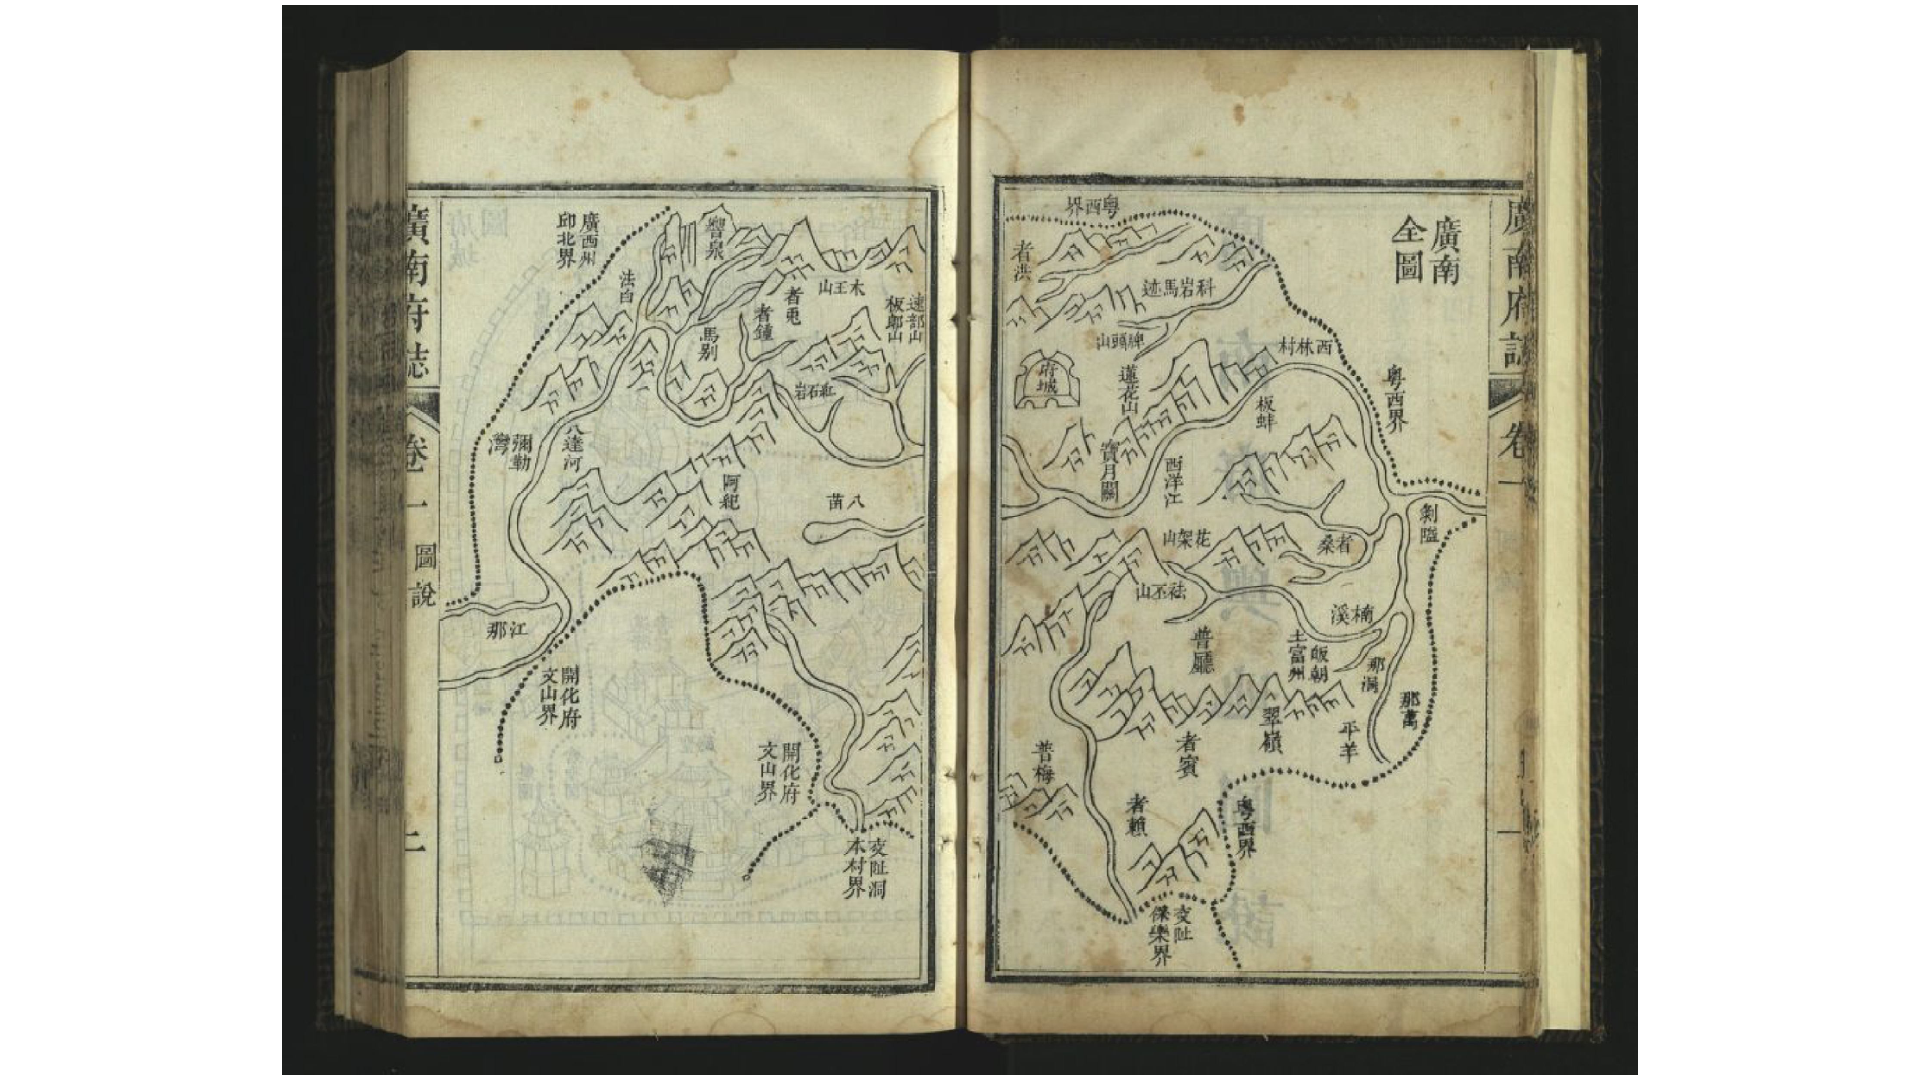 廣南
全圖
粤西界
者洪
科岩馬迹
牌頭山
府城
西林村
蓮花山
粤西界
板蚌
寳月關
西洋江
剝隘
花架山
者桑
祛丕山
楠溪
普廳
皈朝
土富州
那洞
那萬
翠嶺
平羊
者賓
普梅
者賴
粤西界
交阯
保樂界
廣南府誌
卷一
廣西州
邱北界
響泉
法白
木王山
者兎
者鍾
馬别
速部山
板郎山
紅石岩
彌勒
灣
八達河
阿䂓
八苗
那江
開化府
文山界
開化府
文山界
交阯洞
木村界
廣南府誌
卷一
圖說
二